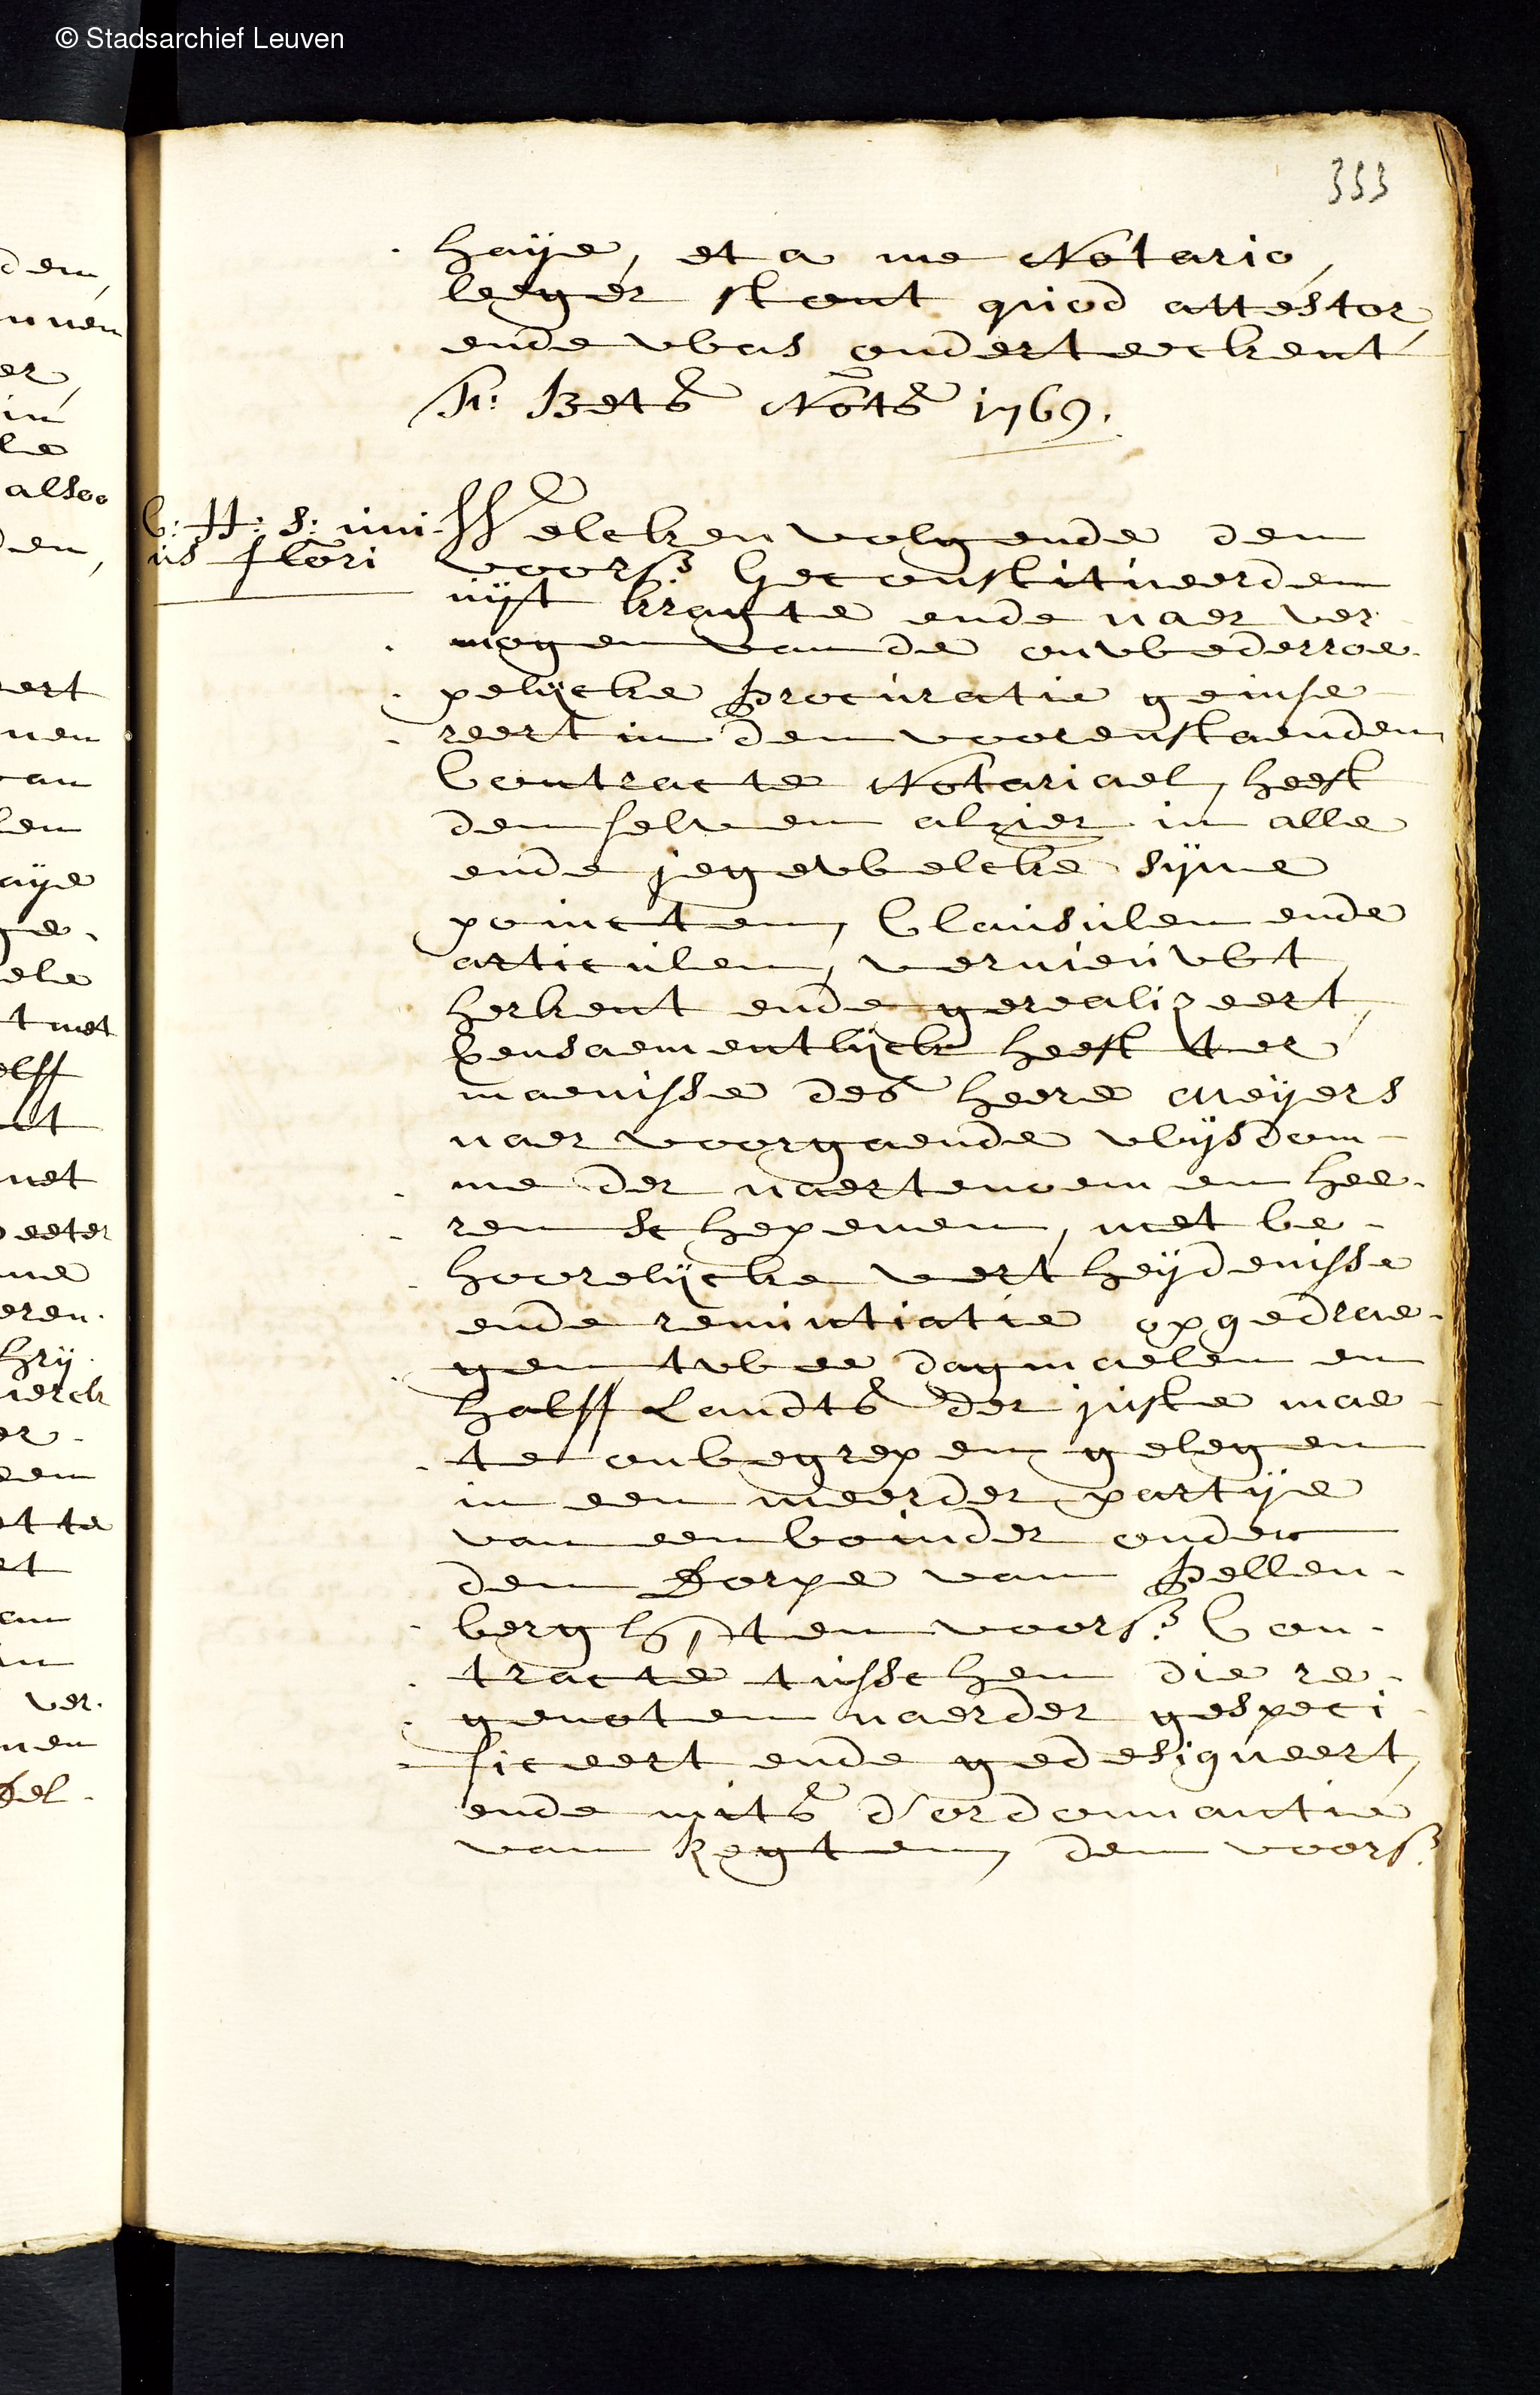 © Stadsarchief Leuven
353
haÿe, et a me Notario,
leeger stont quod attestor,
ende was onderteeckent
Bets Nots 1769.
C: H: S: iiii
us flori
Welcken volgende den
voors. Geconstitueerden
uÿt kragte ende naer ver
mogen van de onwederroe
pelÿcke procuratie geinse
reert in den voorenstaenden
Contracte Notariael, heeft
den selven alhier in alle
ende jegewelcke sÿne
poincten, Clausulen ende
articulen, vernieuwt,
herkent ende gerealizeert,
Consaementlÿck heeft ter
maenisse des heere Meÿers
naer voorgaende wÿsdom
me der naertenoemen hee
ren schepenen, met be
hoorelÿcke vertheÿdenisse
ende renuntiatie opgedrae
gen twee dagmaelen en
halff Landts der juste mae
te onbegrepen gelegen
in een meerder partÿe
van een boinder onder
den Dorpe van Pellen
bergh, ten voors. Con
tracte tusschen die re
genoten naerder gespeci
ficeert ende gedesigneert,
ende mits d'ordonnantie
van Regten, den voors.